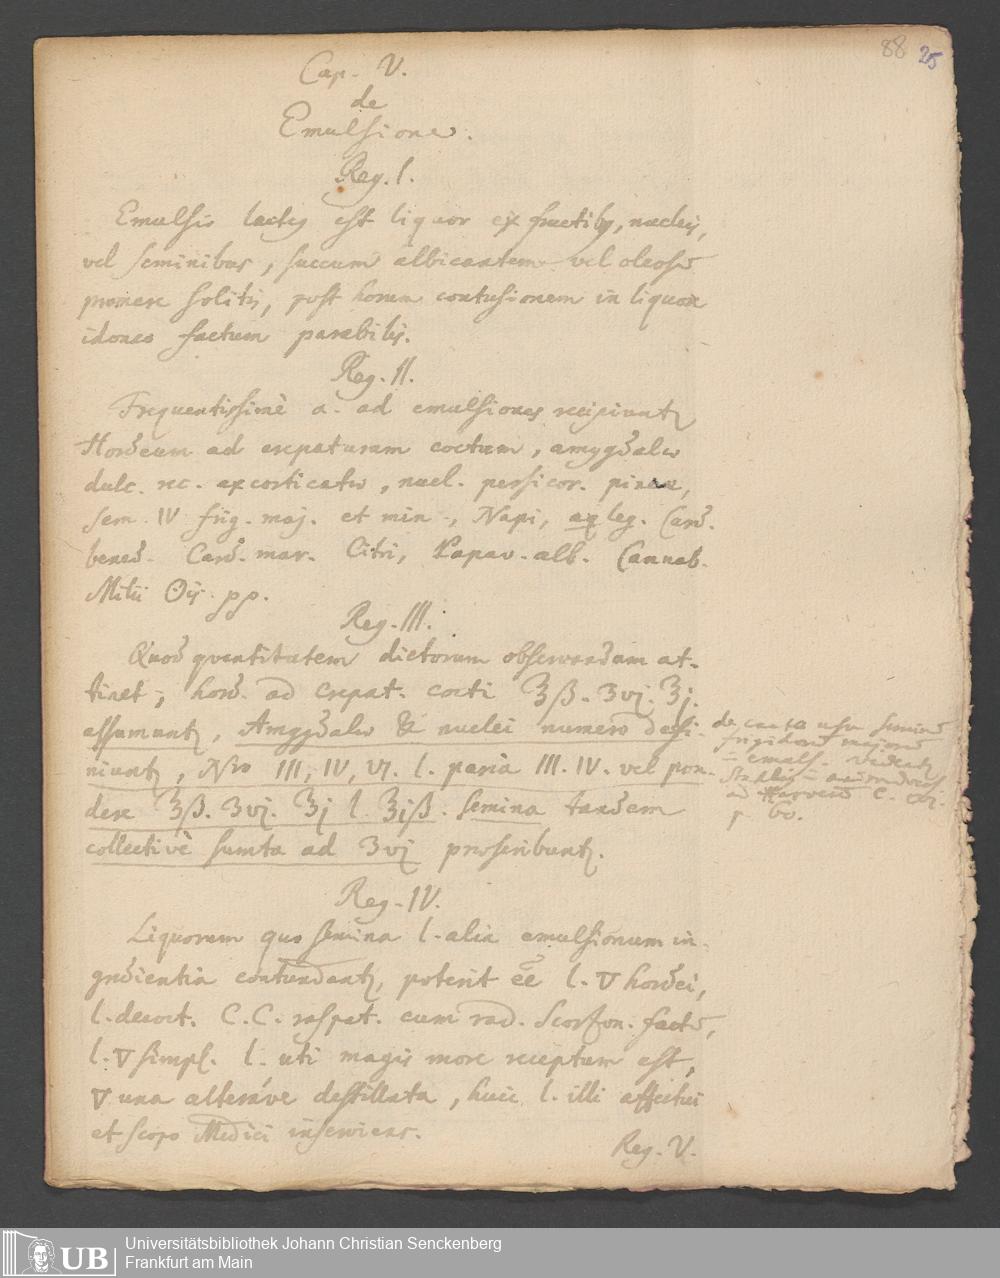 88 25
Cap. V.
de
Emulsione.
Reg. I.
Emulsio lactea est liquor ex fructibus, nucleis,
vel seminibus, succum albicantem vel oleosum
promere solitis, post horum contusionem in liquore
idoneo factum parabilis.
Reg. II.
Frequentissimè a. ad emulsiones recipiuntur
Hordeum ad crepaturam coctum, amygdalae
dulc. rec. excorticatae, nucl. persicor. pineae,
sem. IV frig. maj. et min., Napi, aquileg. Card.
bened. Card. mar. Citri, Papav. alb. Cannab.
Milii ☉is. pp.
Reg. III.
Quod quantitatem dictorum observandam at-
tinet, hord. ad crepat. cocti ℥ß. ʒvj. ℥j.
assumuntur, Amygdalae & nuclei numero defi-
niuntur, Nro III, IV, VI. l. paria III. IV. vel pon-
dere ℥ß. ʒvj. ℥j l. ℥jß. semina tandem
collectivè sumta ad ʒvj proscribuntur.
de cauto usu seminum
frigidorum majorum
in emuls.
p. 60.
Reg. IV.
Liquorum quo semina l. alia emulsionum in-
gredientia contunduntur, poterit eē l. ▽ hordei,
l. decoct. C. C. raspat. cum rad. Scorzon. factum,
l. ▽ simpl. l. uti magis more receptum est,
▽ una alteráve destillata, huic l. illi affectui
et scopo Medici inserviens.
Reg. V.
UB
Universitätsbibliothek Johann Christian Senckenberg
Frankfurt am Main